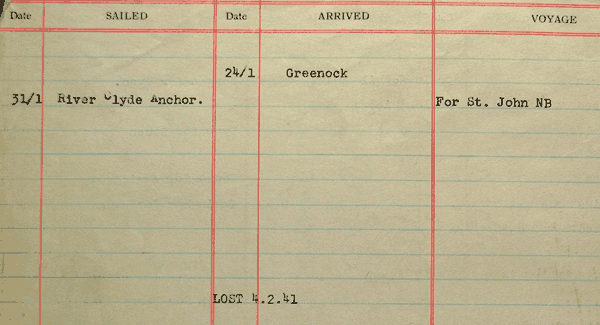 Date SAILED Date ARRIVED VOYAGE
24/1 Greenock
31/1 River Clyde Anchor. For St. John NB
LOST 4.2.41